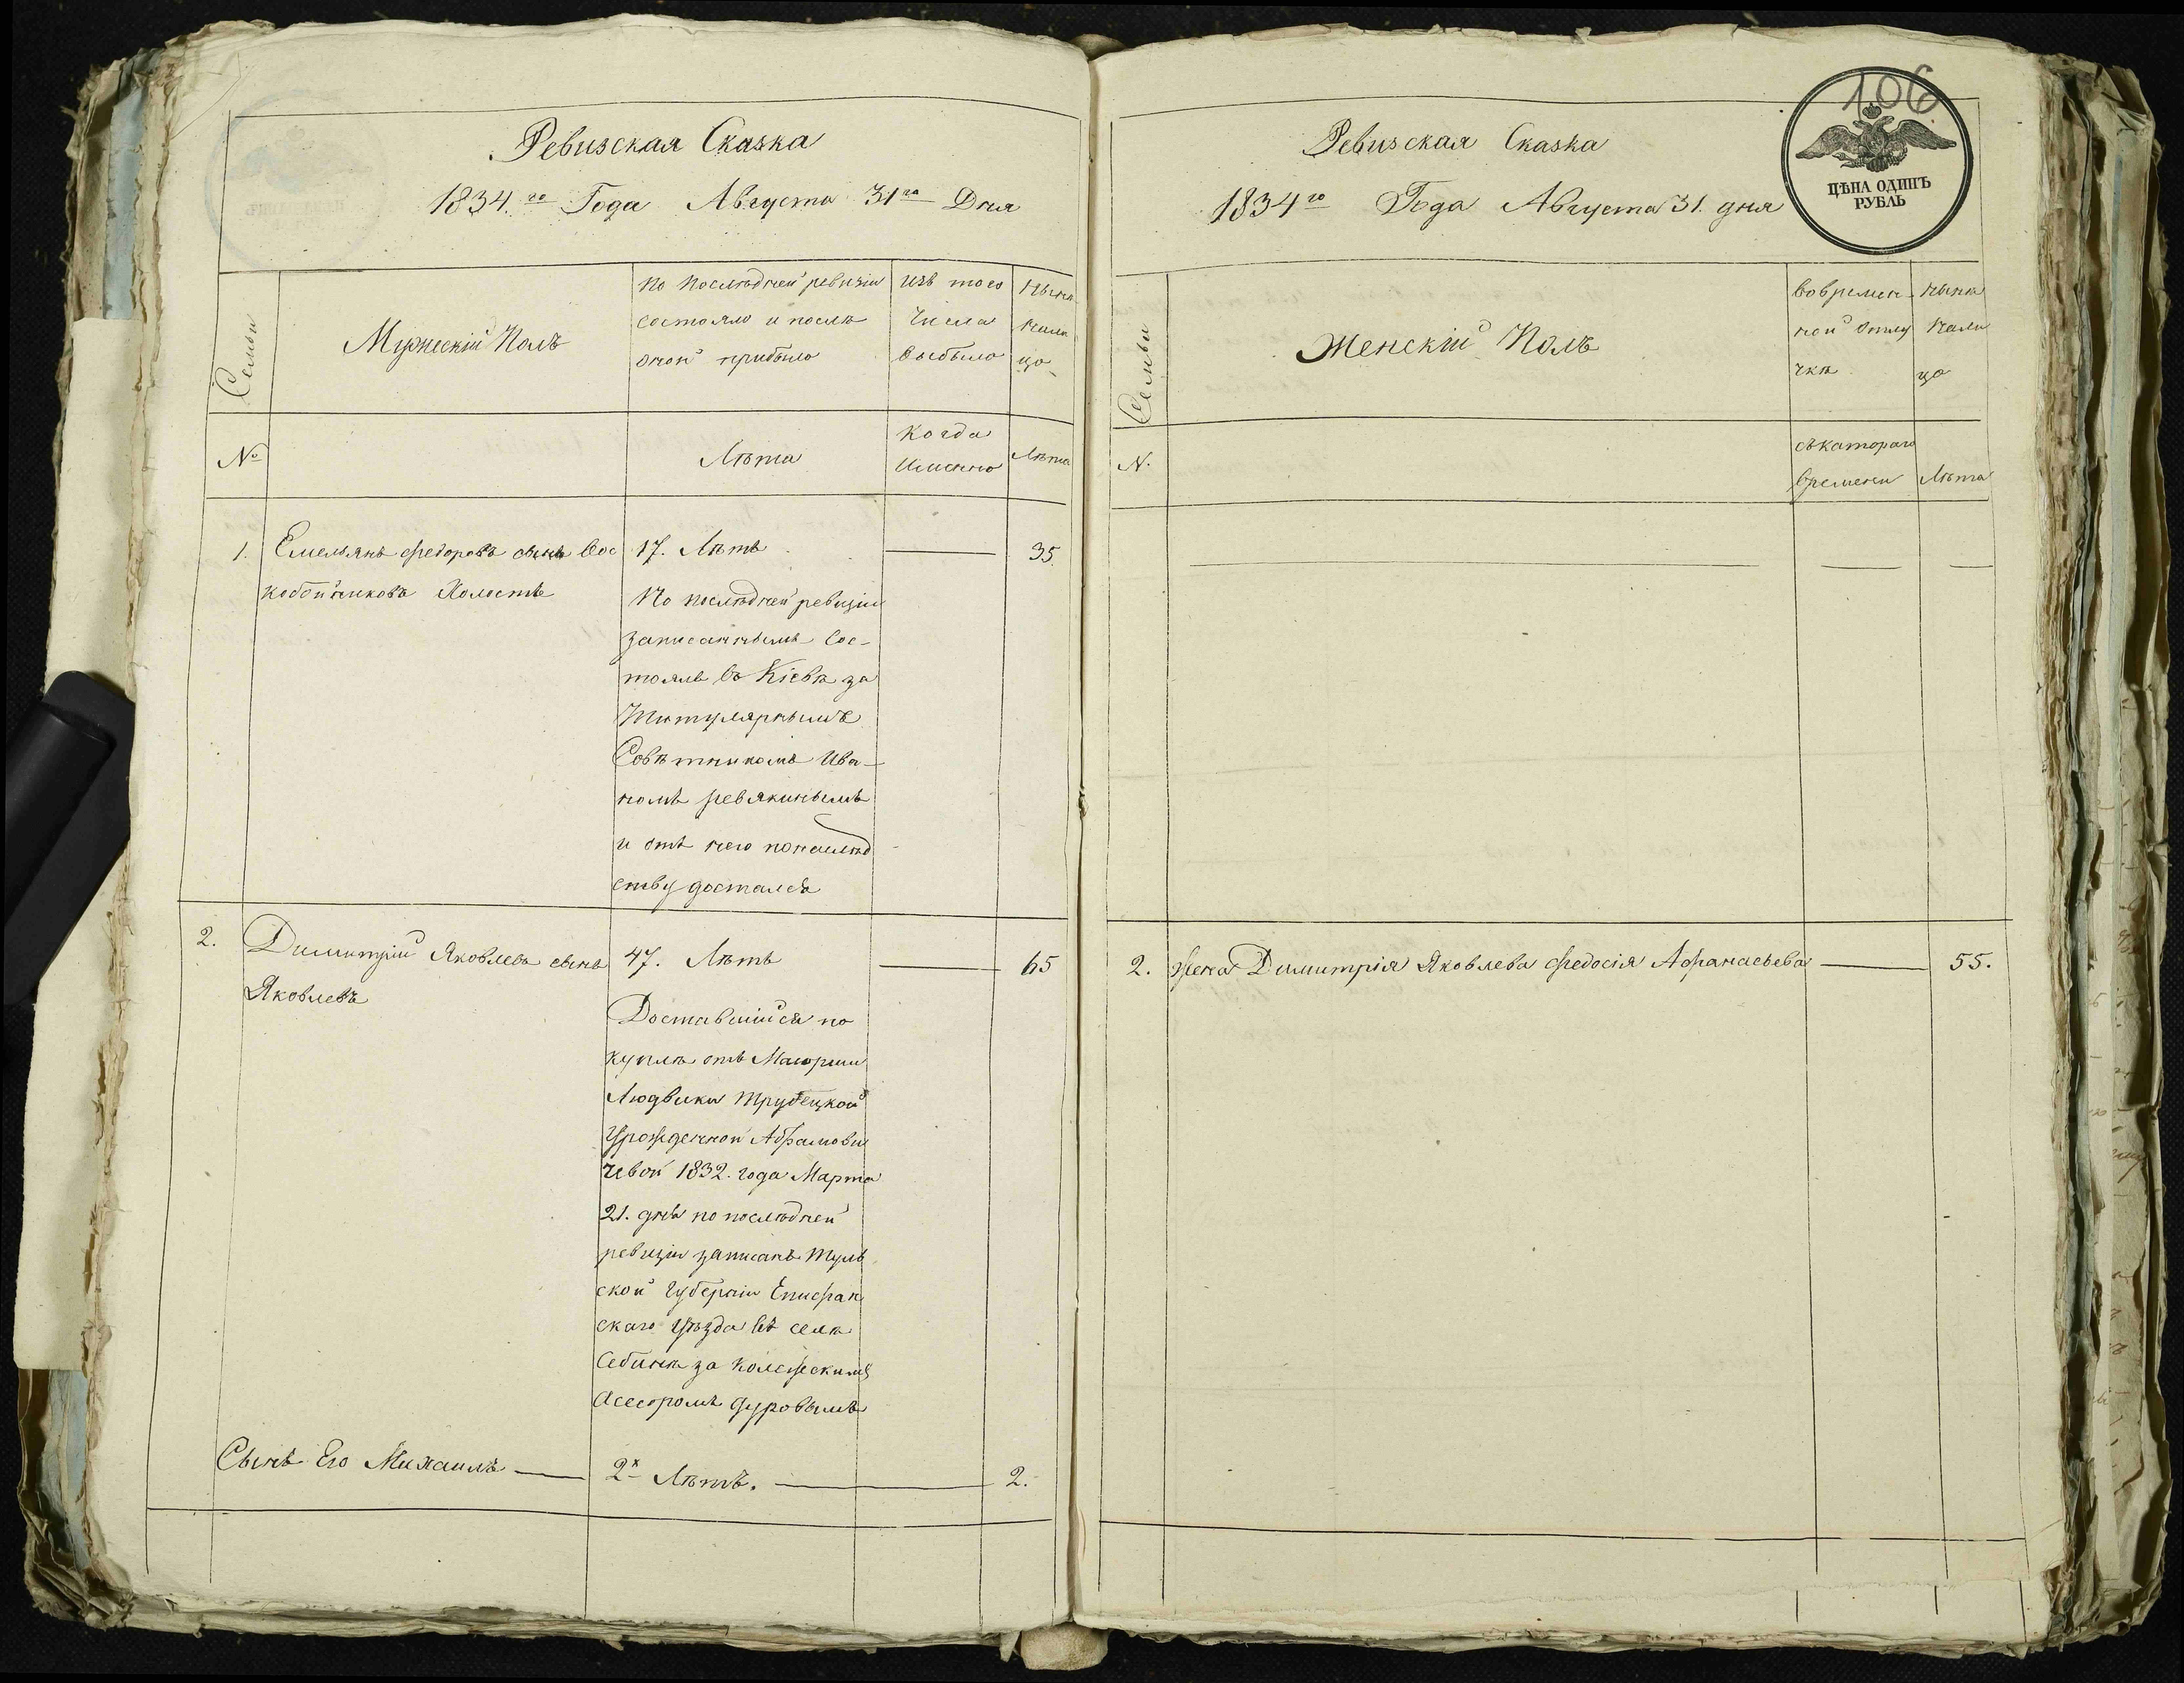 Ревизская Сказка
1834.го Года Августа 31го Дня
Семьи
Мужескій Полъ
По последней ревизіи
состояло и после
оной прибыло
Изъ того
Числа
Выбыло
Ныне
Нали
цо
№
Лѣта
Когда
Именно
Лѣта
1. Емельянъ Федоровъ сынъ Вос 17. Лѣтъ 35
кобойниковъ Холостъ
По последней ревизіи
записаннымъ Сос-
тоялъ въ Кіевѣ за
Титулярнымъ
Совѣтникомъ Ива-
номъ Ревякинымъ
и отъ него понаслѣд
ству достался
2. Димитрій Яковлевъ сынъ 47. Лѣтъ 65
Яковлевъ
Доставшійся по
куплѣ отъ Маіорши
Людвики Трубецкой
Урожденной Абрамови
чевой 1832. года Марта
21. дня по послѣдней
ревизіи записанъ Туль
ской Губерніи Епифан
скаго Уѣзда въ селѣ
Себинѣ за Колежскимъ
Асесоромъ Дуровымъ
Сынъ Его Михаилъ 2х Лѣтъ. 2.
106
Ревизская Сказка
1834го Года Августа 31. дня
ЦѢНА ОДИНЪ
РУБЛЬ
Семьи
Женскій Полъ
Вовремен-
ной отлу
чкѣ
Ныне
Нали
цо
N.
съкатораго
времени
Лѣта
2. Жена Димитрія Яковлева Федосія Афанасьева 55.